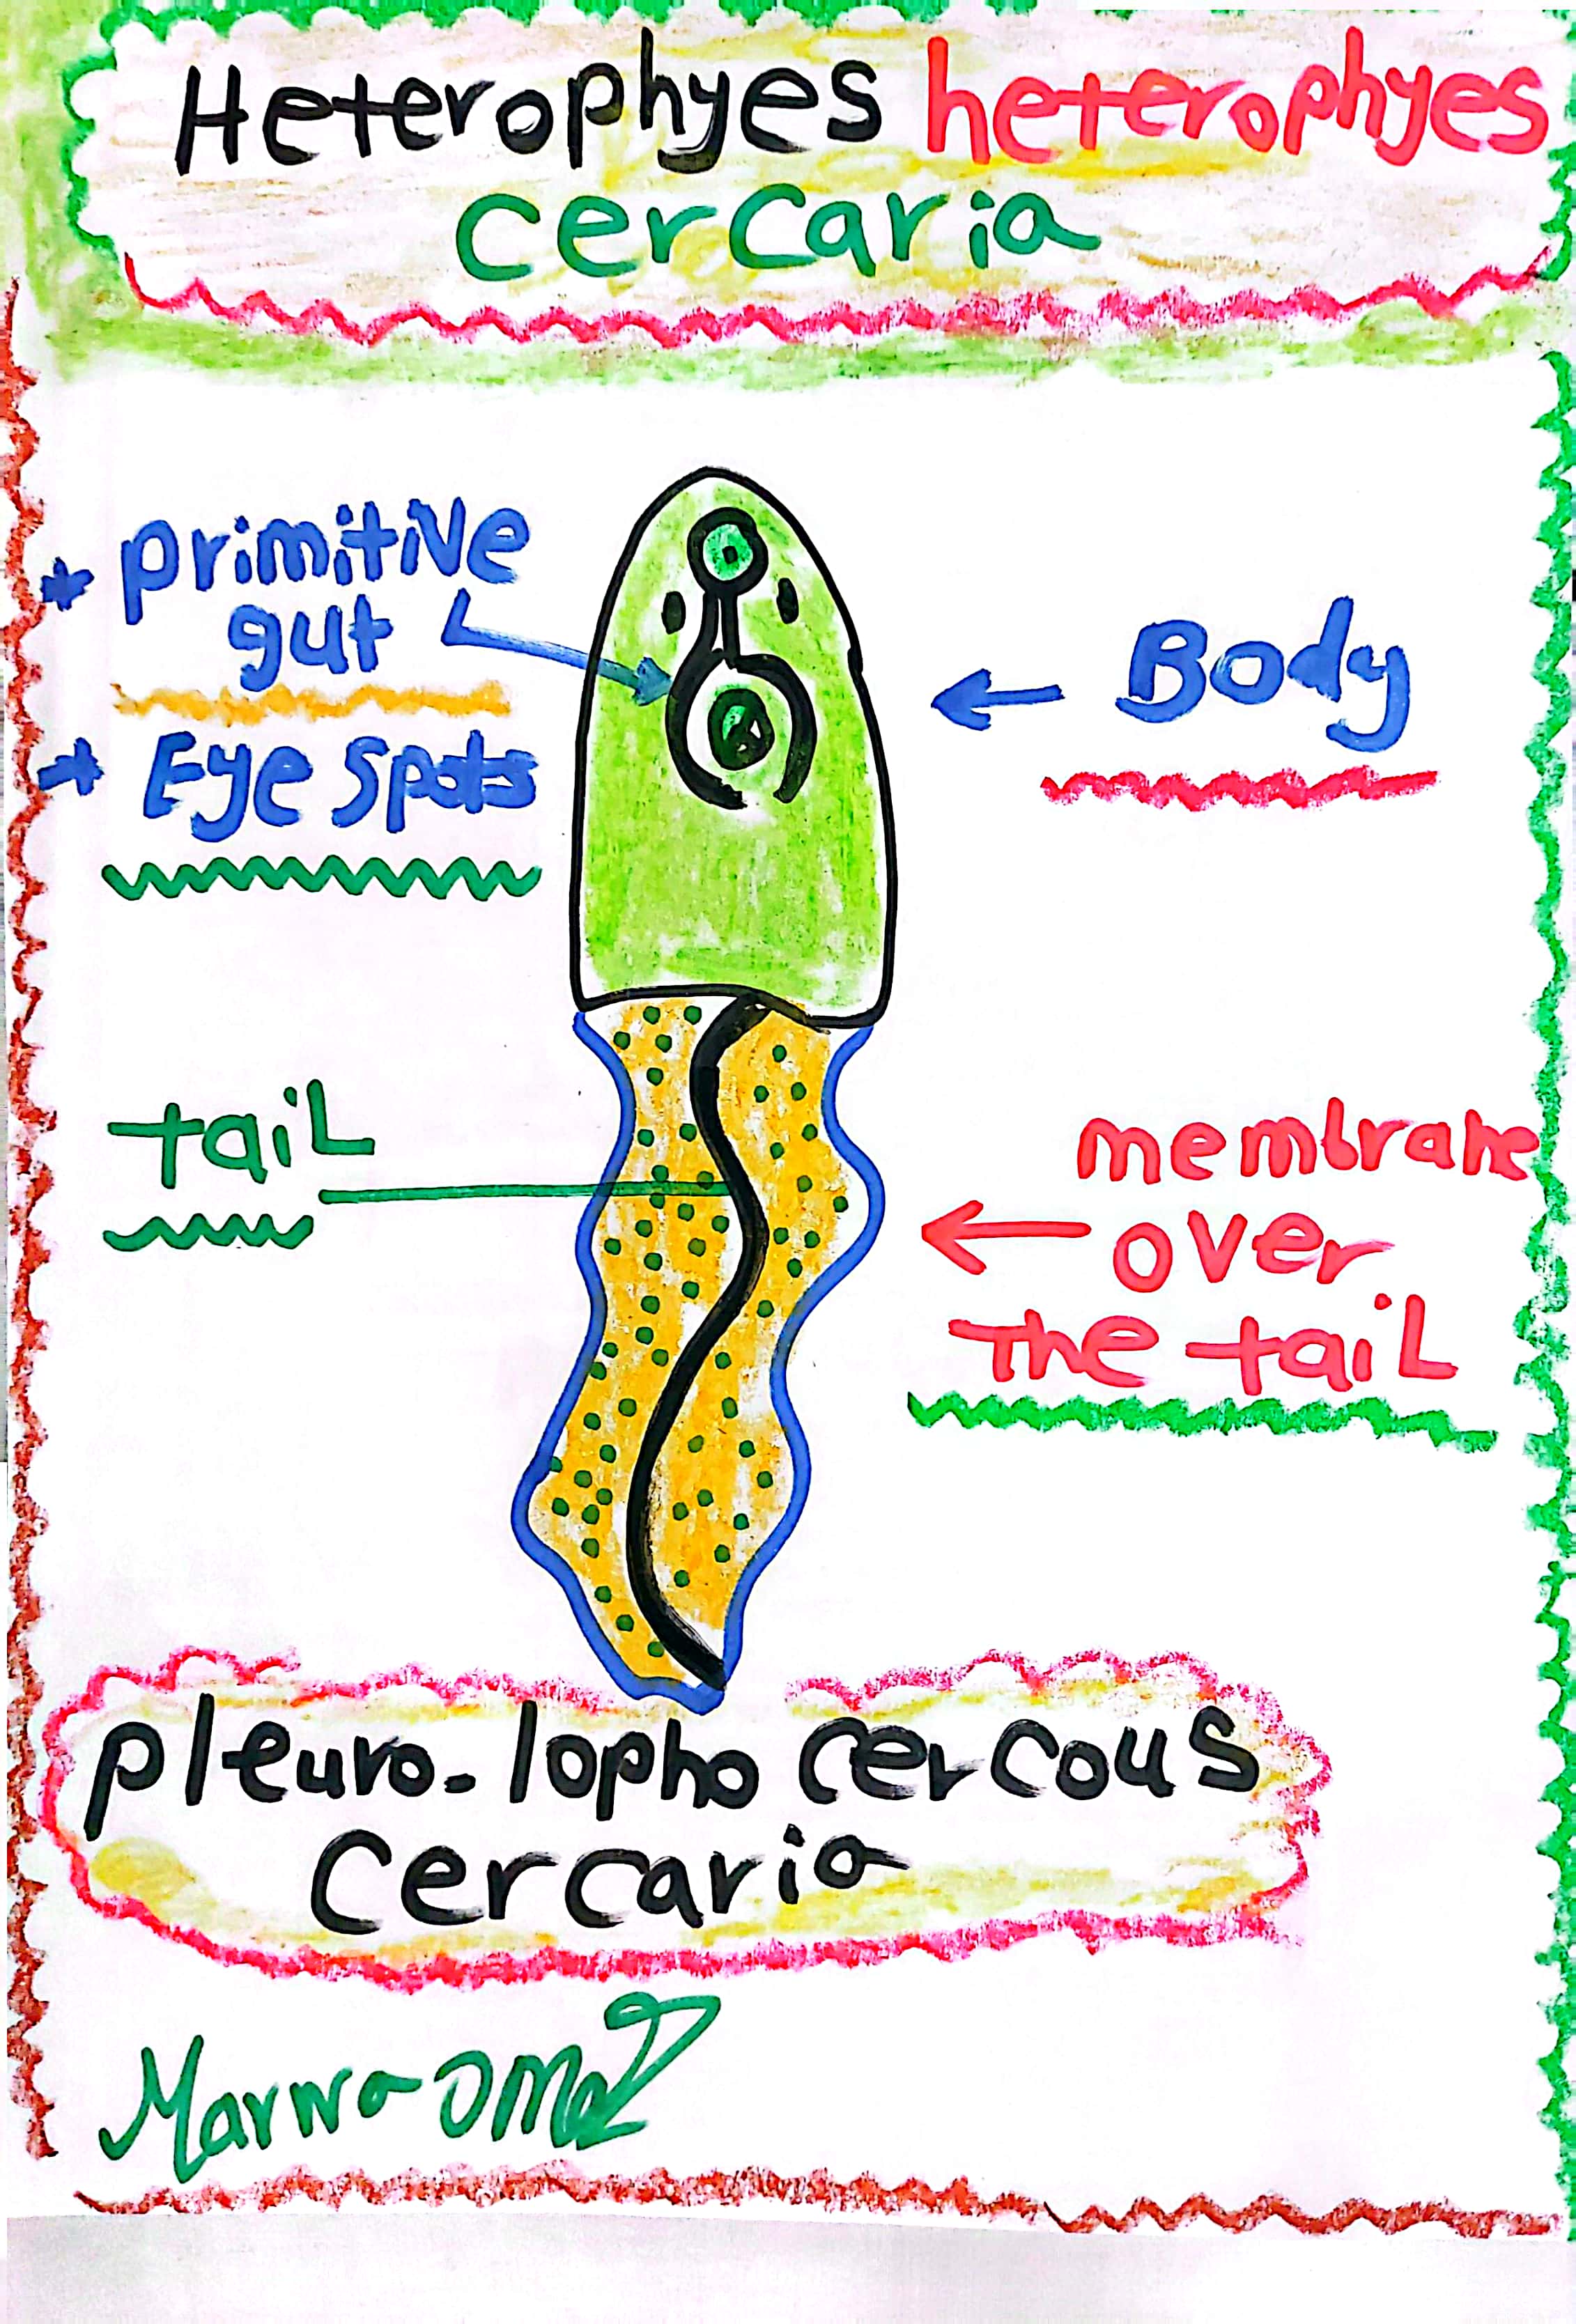 Heterophyes heterophyes
cercaria
* primitive
gut
* Eye spots
Body
tail
membrane
over
the tail
pleuro-lopho cercous
cercaria
Marwa Omar